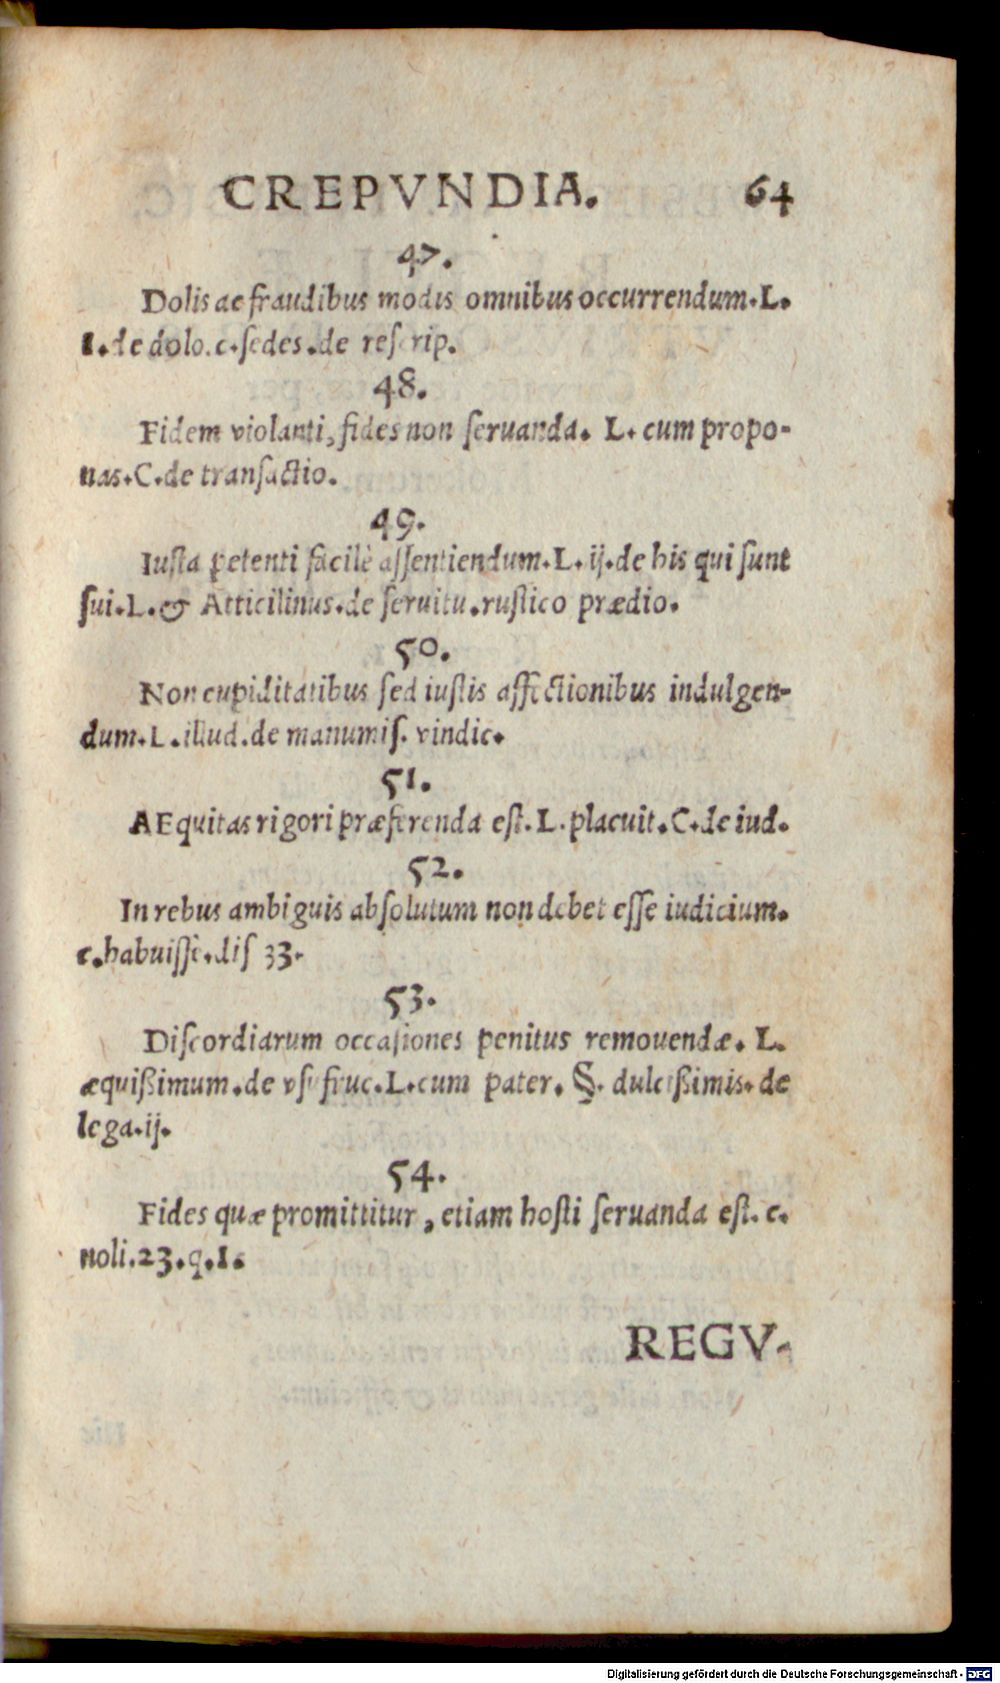 CREPVNDIA. 64
47.
Dolis ac fraudibus modis omnibus occurrendum. L.
I. de dolo. c. sedes. de rescrip.
48.
Fidem violanti, fides non seruanda. L. cum propo-
nas. C. de transactio.
49.
Iusta petenti facilè assentiendum. L. ij. de his qui sunt
sui. L. & Atticilinus. de seruitu. rustico prædio.
50.
Non cupiditatibus sed iustis affectionibus indulgen-
dum. L. illud. de manumis. vindic.
51.
AEquitas rigori præferenda est. L. placuit. C. de iud.
52.
In rebus ambiguis absolutum non debet esse iudicium.
c. habuisse. dis 33.
53.
Discordiarum occasiones penitus remouendæ. L.
æquißimum. de vsufruc. L. cum pater. §. dulcißimis. de
lega. ij.
54.
Fides quæ promittitur, etiam hosti seruanda est. c.
noli. 23. q. I.
REGV-
Digitalisierung gefördert durch die Deutsche Forschungsgemeinschaft - DFG